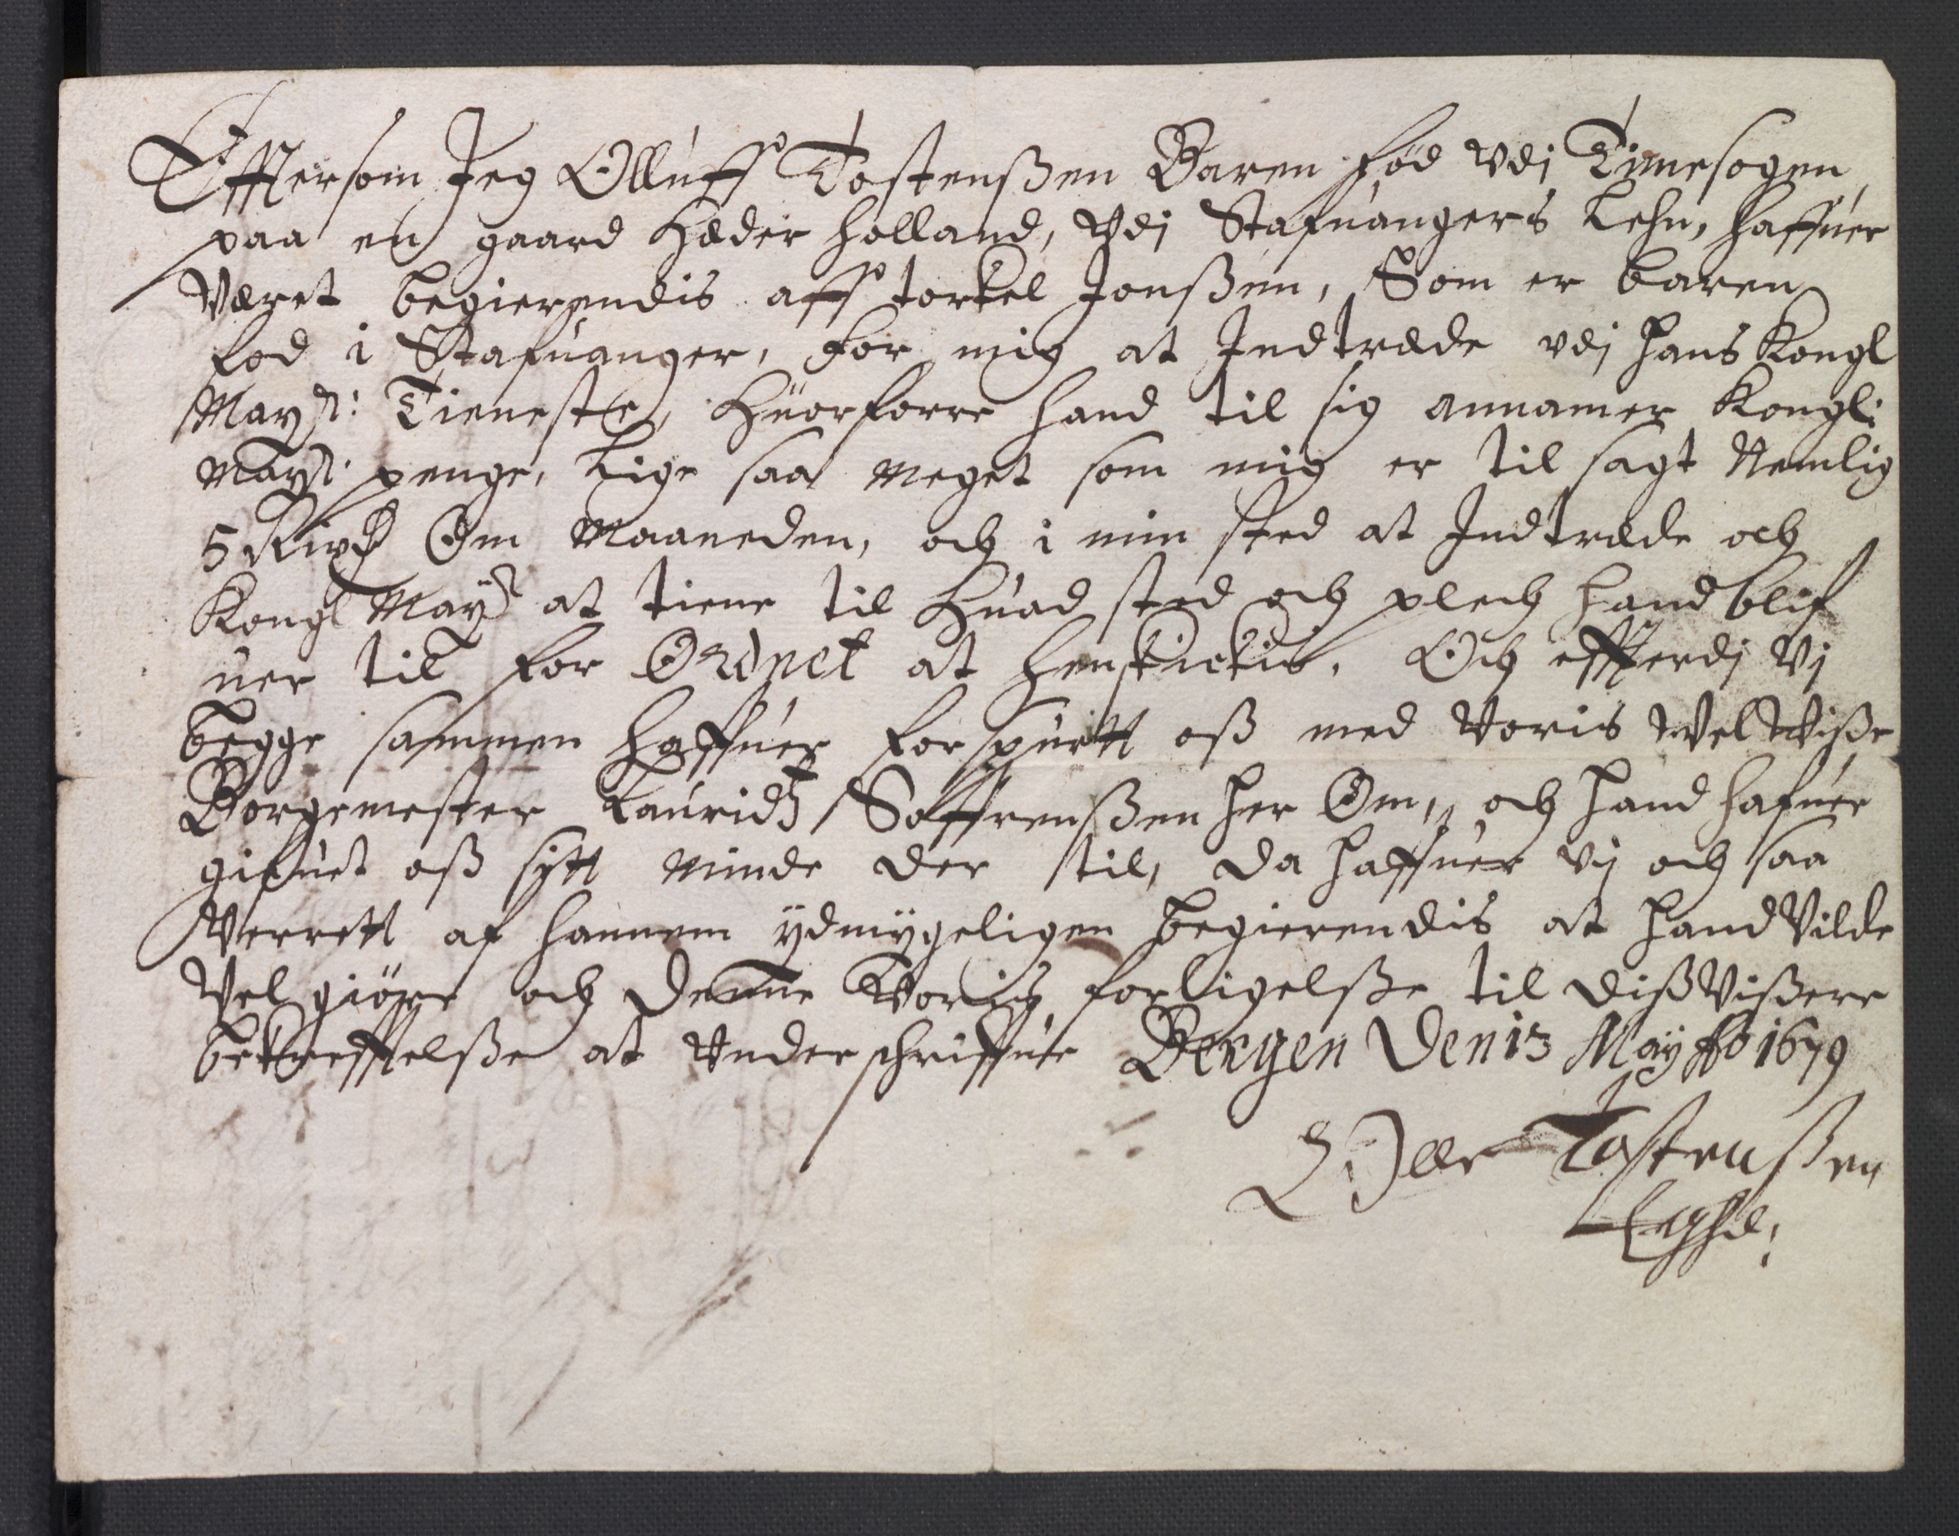 Efftersom Jeg Olluff Tostenßen Baren fød Udj Timesogen,
paa en gaard Hæder Holland, Udj Stafuangers Lehn, haffuer
Været begierendis aff torkel Jonßen, Som er baren
fod i Stafuanger, for mig at Indtræde udj hans Kongl
Mayst: Tieneste, Huorforre hand til sig annamer Kongl:
Mayst: penge, Lige saa meget som mig er til sagt Nemlig
5 Rixd Om Maaneden, och i min sted at Indtræde och
Kongl Mayst at tiene til Huad sted och plech hand blif
uer til for Ordnet at henskickis, Och effterdj Vj
begge sammen haffuer forspurtt oß med Voris Wel Wiße
Borgemester Lauridtz Søffrenßen her Om, och hand hafuer
gifuet oß sytt minde der til, da haffuer vj och saa
Verrett af hannem ydmygeligen begierendis at hand Vilde
Vel giöre och denne Voris forligelße til dißVißere
bekrefftelße at Underschriffue Bergen Den 13 May Ao 1679
Oller Tostenßen